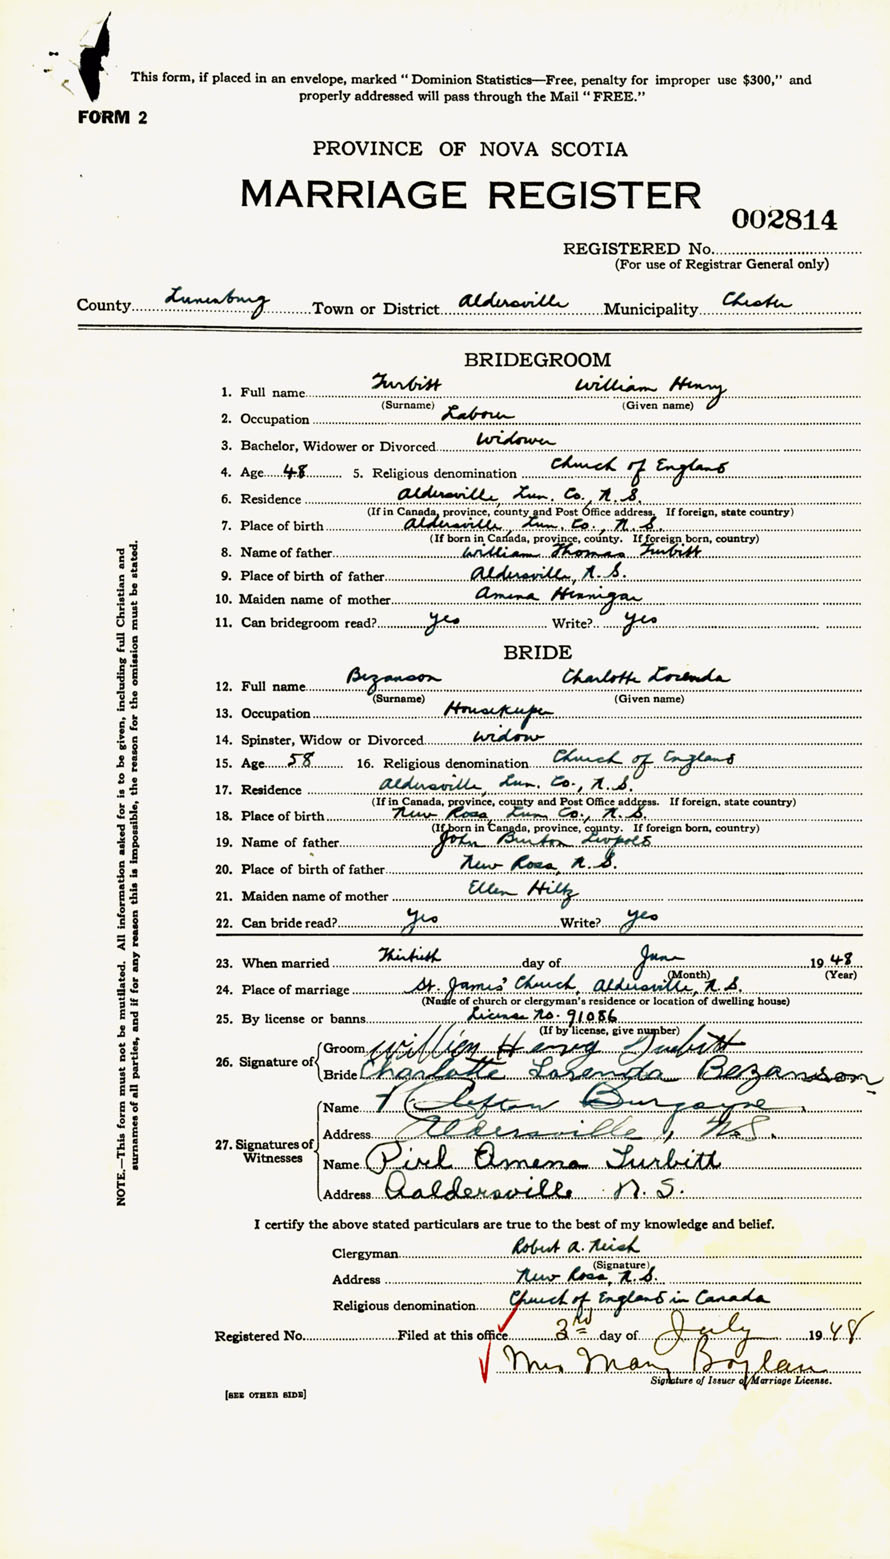 This form, if placed in an envelope, marked “ Dominion Statistics—Free, penalty for improper use $300,” and
properly addressed will pass through the Mail “ FREE.”
FORM 2
PROVINCE OF NOVA SCOTIA
MARRIAGE REGISTER
002814
REGISTERED No.
(For use of Registrar General only)
County Lunenburg Town or District Aldersville Municipality Chester
BRIDEGROOM
1. Full name Turbitt William Henry
(Surname) (Given name)
2. Occupation Labour
3. Bachelor, Widower or Divorced Widower
4. Age 48 5. Religious denomination Church of England
6. Residence Aldersville, Lun. Co., N.S.
(If in Canada, province, county and Post Office address. If foreign, state country)
7. Place of birth Aldersville, Lun. Co., N.S.
(If born in Canada, province, county. If foreign born, country)
8. Name of father William Thomas Turbitt
9. Place of birth of father Aldersville, N.S.
10. Maiden name of mother Amena Hennigar
11. Can bridegroom read? yes Write? yes
BRIDE
12. Full name Bezanson Charlotte Lorenda
(Surname) (Given name)
13. Occupation Housekeeper
14. Spinster, Widow or Divorced Widow
15. Age 58 16. Religious denomination Church of England
17. Residence Aldersville, Lun. Co., N.S.
(If in Canada, province, county and Post Office address. If foreign, state country)
18. Place of birth New Ross, Lun. Co., N.S.
(If born in Canada, province, county. If foreign born, country)
19. Name of father John Burton Leopold
20. Place of birth of father New Ross, N.S.
21. Maiden name of mother Ellen Hiltz
22. Can bride read? yes Write? yes
23. When married Thirtieth day of June 1948
(Month) (Year)
24. Place of marriage St. James' Church, Aldersville, N.S.
(Name of church or clergyman's residence or location of dwelling house)
25. By license or banns License No. 91086
(If by license, give number)
26. Signature of Groom William Henry Turbitt
Bride Charlotte Lorenda Bezanson
27. Signatures of Witnesses
Name Clifton Burgoyne
Address Aldersville, N.S.
Name Pirl Amena Turbitt
Address Aaldersville N.S.
I certify the above stated particulars are true to the best of my knowledge and belief.
Clergyman Robert A. Neish
(Signature)
Address New Ross, N.S.
Religious denomination Church of England in Canada
Registered No. Filed at this office 3rd day of July 1948
Mrs Mary Boylan
Signature of Issuer of Marriage License.
[SEE OTHER SIDE]
NOTE.—This form must not be mutilated. All information asked for is to be given, including full Christian and
surnames of all parties, and if for any reason this is impossible, the reason for the omission must be stated.